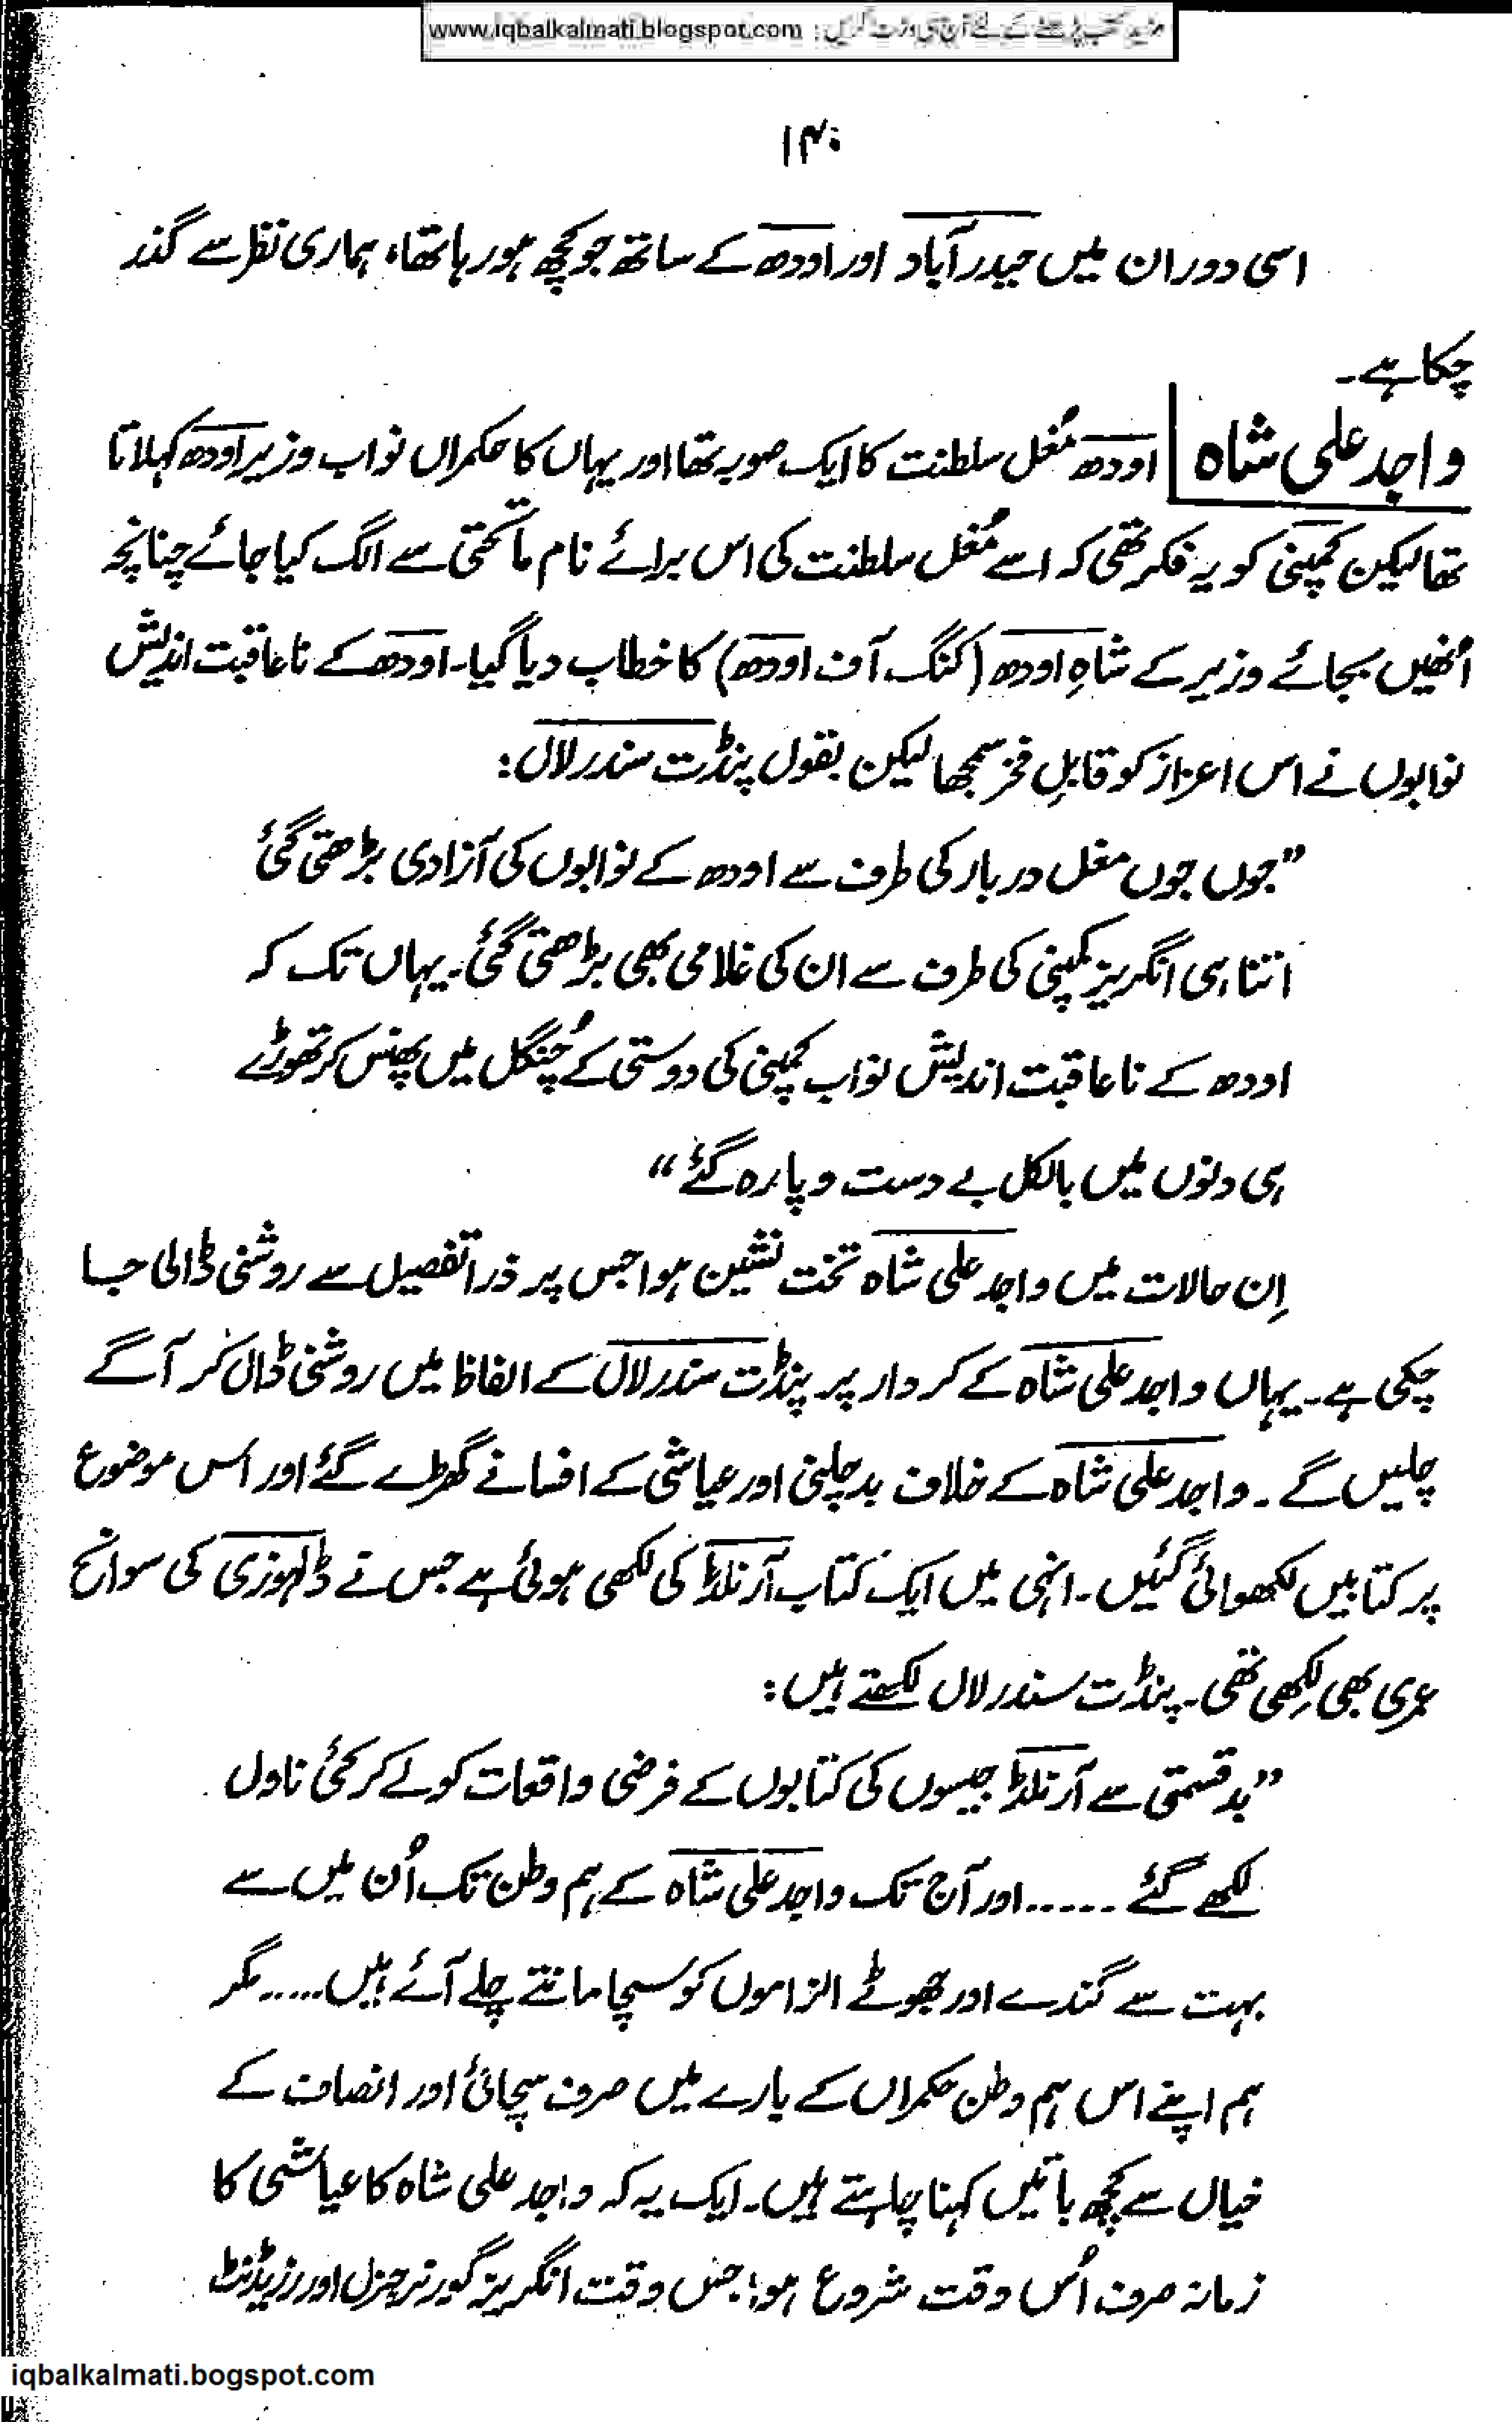 www.iqbalkalmati.blogspot.com : مزید کتب پڑھنے کے لئے آج ہی وزٹ کریں
۱۴۰
اسی دوران میں حیدرآباد اور اودھ کے ساتھ جو کچھ ہو رہا تھا، ہماری نظر سے گذر
چکا ہے۔
واجد علی شاہ اودھ مُغل سلطنت کا ایک صوبہ تھا اور یہاں کا حکمراں نواب وزیر اودھ کہلاتا
تھا لیکن کمپنی کو یہ فکر تھی کہ اسے مُغل سلطنت کی اس برائے نام ماتحتی سے الگ کیا جائے چنانچہ
اُنھیں بجائے وزیر کے شاہِ اودھ (کنگ آف اودھ) کا خطاب دیا گیا۔ اودھ کے ناعاقبت اندیش
نوابوں نے اس اعزاز کو قابلِ فخر سمجھا لیکن بقول پنڈت سندر لال:
”جوں جوں مغل دربار کی طرف سے اودھ کے نوابوں کی آزادی بڑھتی گئی
اتنا ہی انگریز کمپنی کی طرف سے ان کی غلامی بھی بڑھتی گئی۔ یہاں تک کہ
اودھ کے ناعاقبت اندیش نواب کمپنی کی دوستی کے چُنگل میں پھنس کر تھوڑے
ہی دنوں میں بالکل بے دست و پا رہ گئے“
اِن حالات میں واجد علی شاہ تخت نشین ہوا جس پر ذرا تفصیل سے روشنی ڈالی جا
چکی ہے۔ یہاں واجد علی شاہ کے کردار پر پنڈت سندر لال کے الفاظ میں روشنی ڈال کر آگے
چلیں گے۔ واجد علی شاہ کے خلاف بدچلنی اور عیاشی کے افسانے گھڑے گئے اور اس موضوع
پر کتابیں لکھوائی گئیں۔ انہی میں ایک کتاب آرنلڈ کی لکھی ہوئی ہے جس نے ڈلہوزی کی سوانح
عمری بھی لِکھی تھی۔ پنڈت سندر لال لکھتے ہیں:
”بدقسمتی سے آرنلڈ جیسوں کی کتابوں کے فرضی واقعات کو لے کر کئی ناول
لکھے گئے ...... اور آج تک واجد علی شاہ کے ہم وطن تک اُن میں سے
بہت سے گندے اور جھوٹے الزاموں کو سچا مانتے چلے آئے ہیں..... مگر
ہم اپنے اس ہم وطن حکمراں کے بارے میں صرف سچائی اور انصاف کے
خیال سے کچھ باتیں کہنا چاہتے ہیں۔ ایک یہ کہ واجد علی شاہ کا عیاشی کا
زمانہ صرف اُس وقت شروع ہوا جس وقت انگریز گورنر جنرل اور رزیڈنٹ
iqbalkalmati.bogspot.com